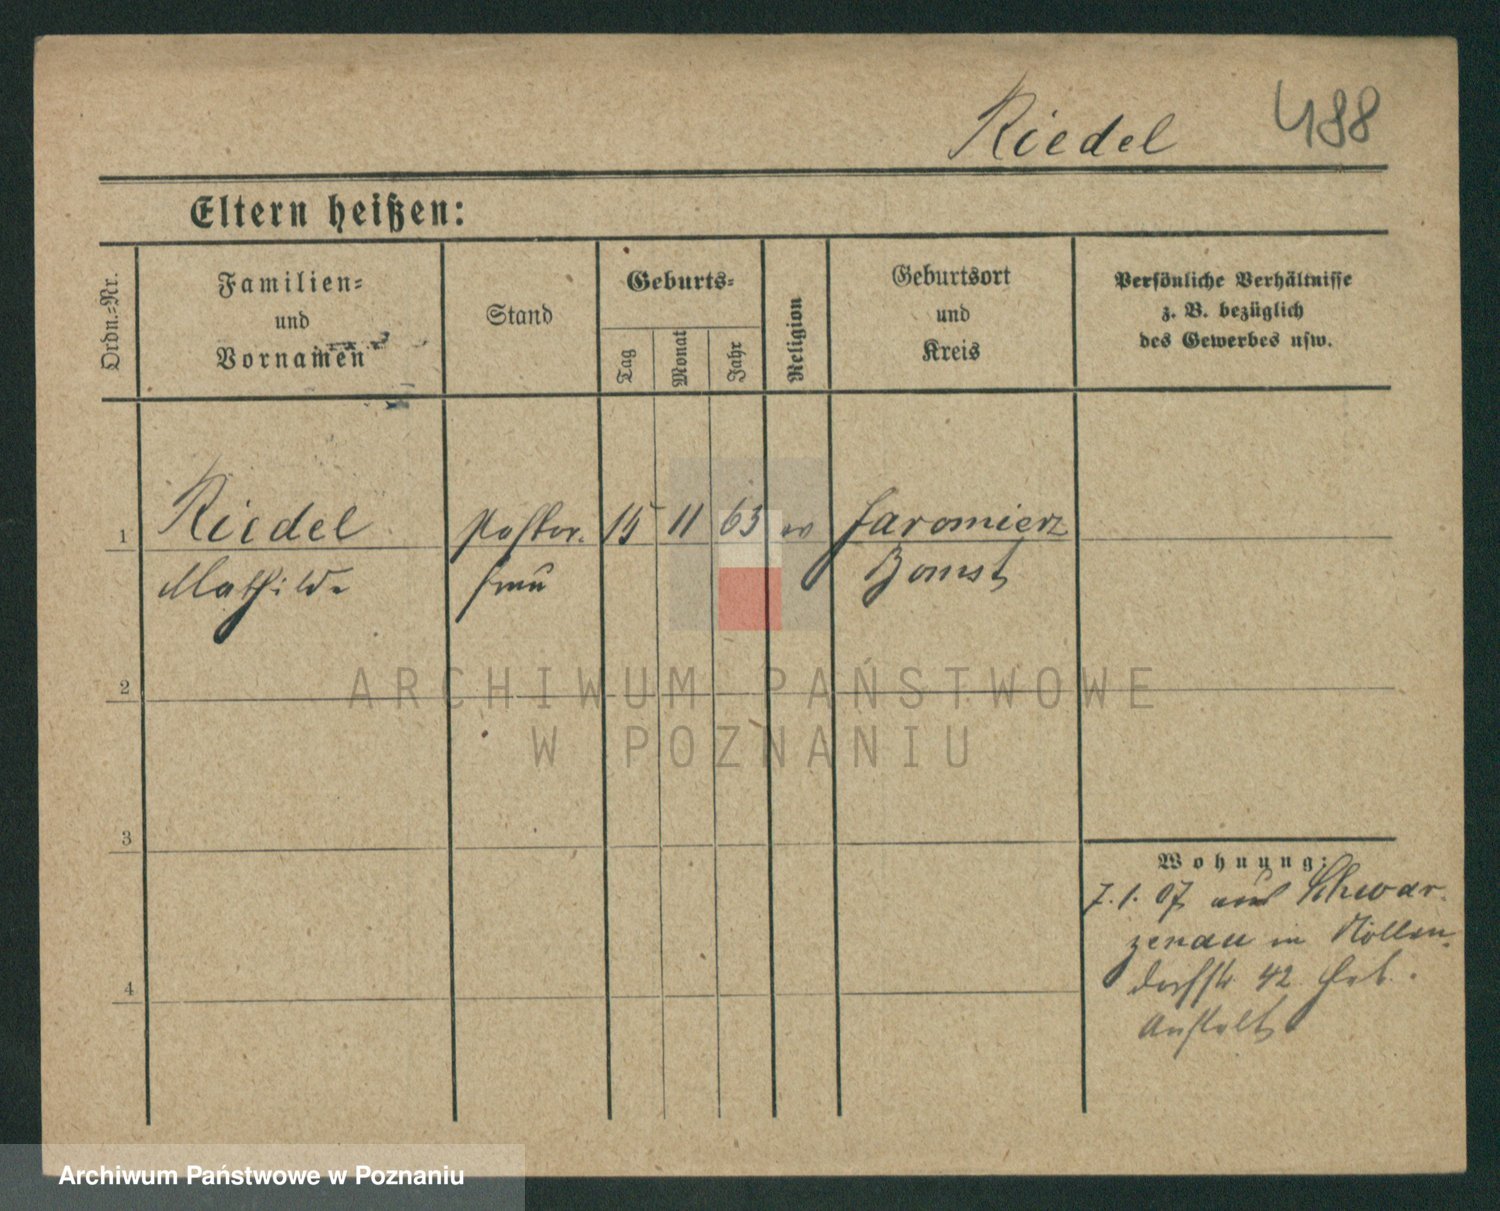 Riedel 488
Eltern heißen:
Ordn.-Nr.
Familien-
und
Vornamen
Stand
Geburts-
Tag
Monat
Jahr
Religion
Geburtsort
und
Kreis
Persönliche Verhältnisse
z. B. bezüglich
des Gewerbes usw.
1 Riedel Pastor- 15 11 63 ev Jaromierz
Mathilde frau Bomst
2
3
4
Wohnung:
7.1.07 aus Schwar-
zenau in Nöllen-
dorfstr 42
Anstalt
ARCHIWUM PAŃSTWOWE
W POZNANIU
Archiwum Państwowe w Poznaniu